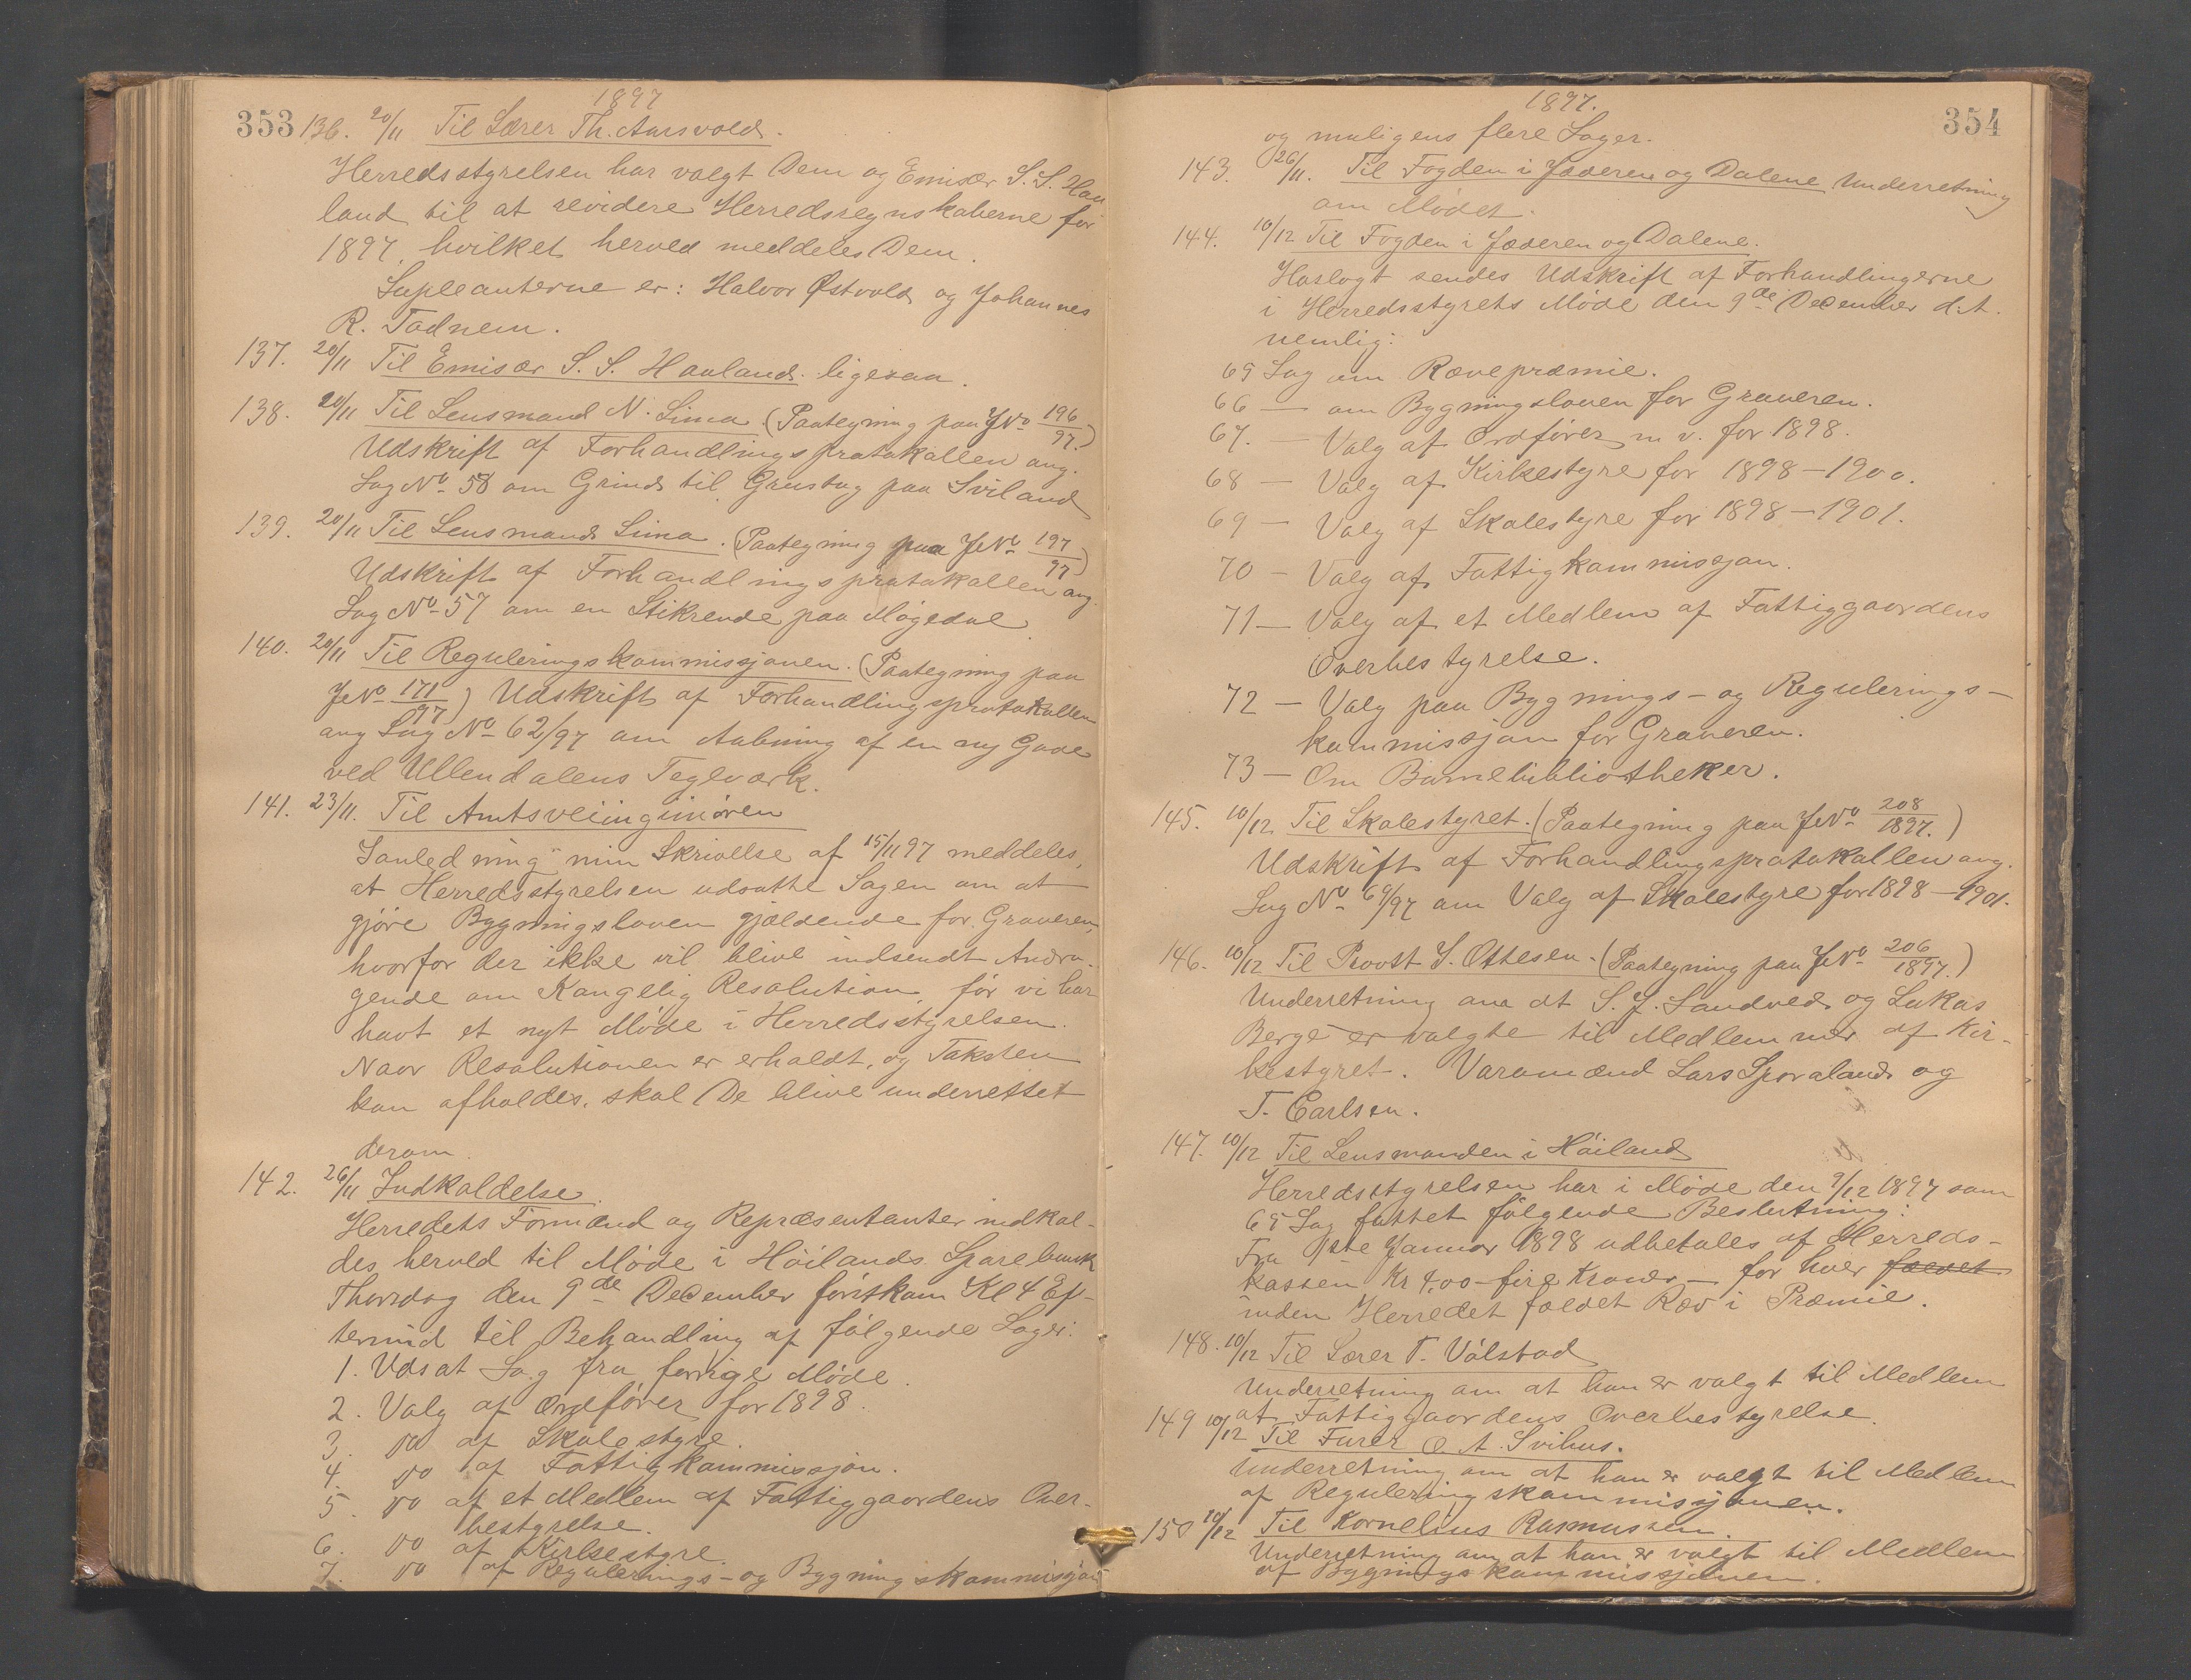 353
1897
136. 20/11 Til Lærer Th. Aarsvold.
Herredsstyrelsen har valgt Dem og Emisær S. S. Hau
land til at revidere Herredsregnskaberne for
1897, hvilket herved meddeles Dem.
Supleanterne er: Halvor Østvold og Johannes
R. Tadnem.
137. 20/11 Til Emisær S. S. Hauland. ligesaa.
138. 20/11 Til Lensmand N. Lima (Paategning paa JNo 196/97.)
Udskrift af Forhandlingsprotokollen ang.
Sag No 58 om Grind til Grustag paa Sviland
139. 20/11 Til Lensmand Lima. (Paategning paa JNo 197/97)
Udskrift af Forhandlingsprotokollen ang.
Sag No 57 om en Stikrende paa Møgedal
140. 20/11 Til Reguleringskommissjonen. (Paategning paa
JNo 171/97) Udskrift af Forhandlingsprotokollen
ang Sag No 62/97 om Aabning af en ny Gade
ved Ullendalens Teglværk.
141. 23/11. Til Amtsveiinginiøren
I anledning min Skrivelse af 15/11 97 meddeles,
at Herredsstyrelsen udsatte Sagen om at
gjøre Bygningsloven gjældende for Graveren,
hvorfor der ikke vil blive indsendt Andra-
gende om Kongelig Resolution, før vi har
havt et nyt Møde i Herredsstyrelsen.
Naar Resolutionen er erholdt, og Taksten
kan afholdes, skal De blive underrettet
derom.
142. 26/11 Indkaldelse.
Herredets Formænd og Repræsentanter indkal-
des herved til Møde i Høilands Sparebank
Thorsdag den 9de December førstkom Kl 4 Ef-
termid til Behandling af følgende Sager:
1. Udsat Sag fra forrige Møde.
2. Valg af Ordfører for 1898.
3. do af Skolestyre.
4. do af Fattigkommissjon.
5. do af et Medlem af Fattiggaardens Over-
bestyrelse.
6. do af Kirkestyre.
7. do af Regulerings- og Bygningskommissjon
1897.
354
og muligens flere Sager.
143. 26/11. Til Fogden i Jæderen og Dalene Underretning
om Mødet.
144. 10/12 Til Fogden i Jæderen og Dalene.
Hoslagt sendes Udskrift af Forhandlingerne
i Herredsstyrets Møde den 9de December d.A.
nemlig:
65 Sag om Rævepræmie.
66 — om Bygningsloven for Graveren.
67. — Valg af Ordfører m v. for 1898.
68 — Valg af Kirkestyre for 1898—1900.
69 — Valg af Skolestyre for 1898—1901.
70 — Valg af Fattigkommissjon.
71 — Valg af et Medlem af Fattiggaardens
Overbestyrelse.
72 — Valg paa Bygnings- og Regulerings-
kommissjon for Graveren.
73 — Om Barnebibliotheker.
145. 10/12 Til Skolestyret. (Paategning paa JNo 208/1897.)
Udskrift af Forhandlingsprotokollen ang.
Sag No 69/97 om Valg af Skolestyre for 1898—1901.
146. 10/12 Til Provst S. Ottesen. (Paategning paa JNo 206/1897.)
Underretning om at S. J. Sandved og Lukas
Berge er valgte til Medlemmer af Kir-
kestyret. Varamænd Lars Sporaland og
T. Carlsen.
147. 10/12 Til Lensmanden i Høiland
Herredsstyrelsen har i Møde den 9/12 1897 som
65 Sag fattet følgende Beslutning:
Fra 1ste Januar 1898 udbetales af Herreds-
kassen Kr 4,00 - fire Kroner - for hver fældet
inden Herredet fældet Ræv i Præmie.
148. 10/12 Til Lærer T. Vølstad
Underretning om at han er valgt til Medlem
af Fattiggaardens Overbestyrelse.
149 10/12 Til Furer O. A. Svihus.
Underretning om at han er valgt til Medlem
af Reguleringskommissjonen.
150 10/12 Til Kornelius Rasmussen.
Underretning om at han er valgt til Medlem
af Bygningskommissjonen.